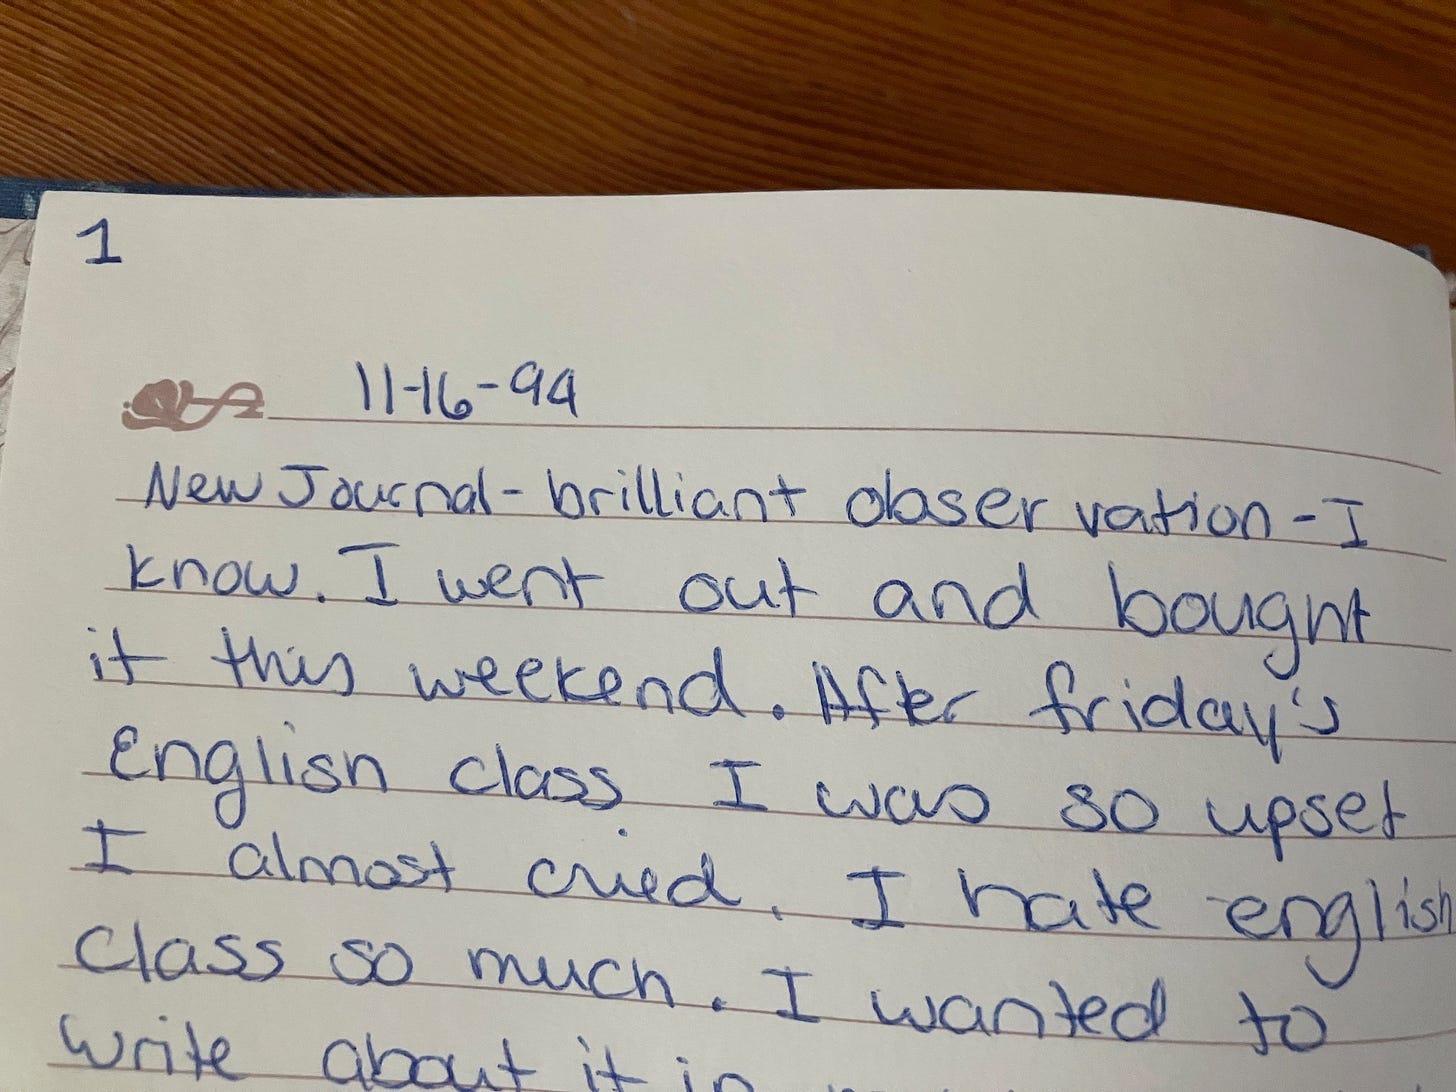 1
11-16-94
New Journal - brilliant observation - I
know. I went out and bought
it this weekend. After friday's
english class I was so upset
I almost cried. I hate english
class so much. I wanted to
write about it in